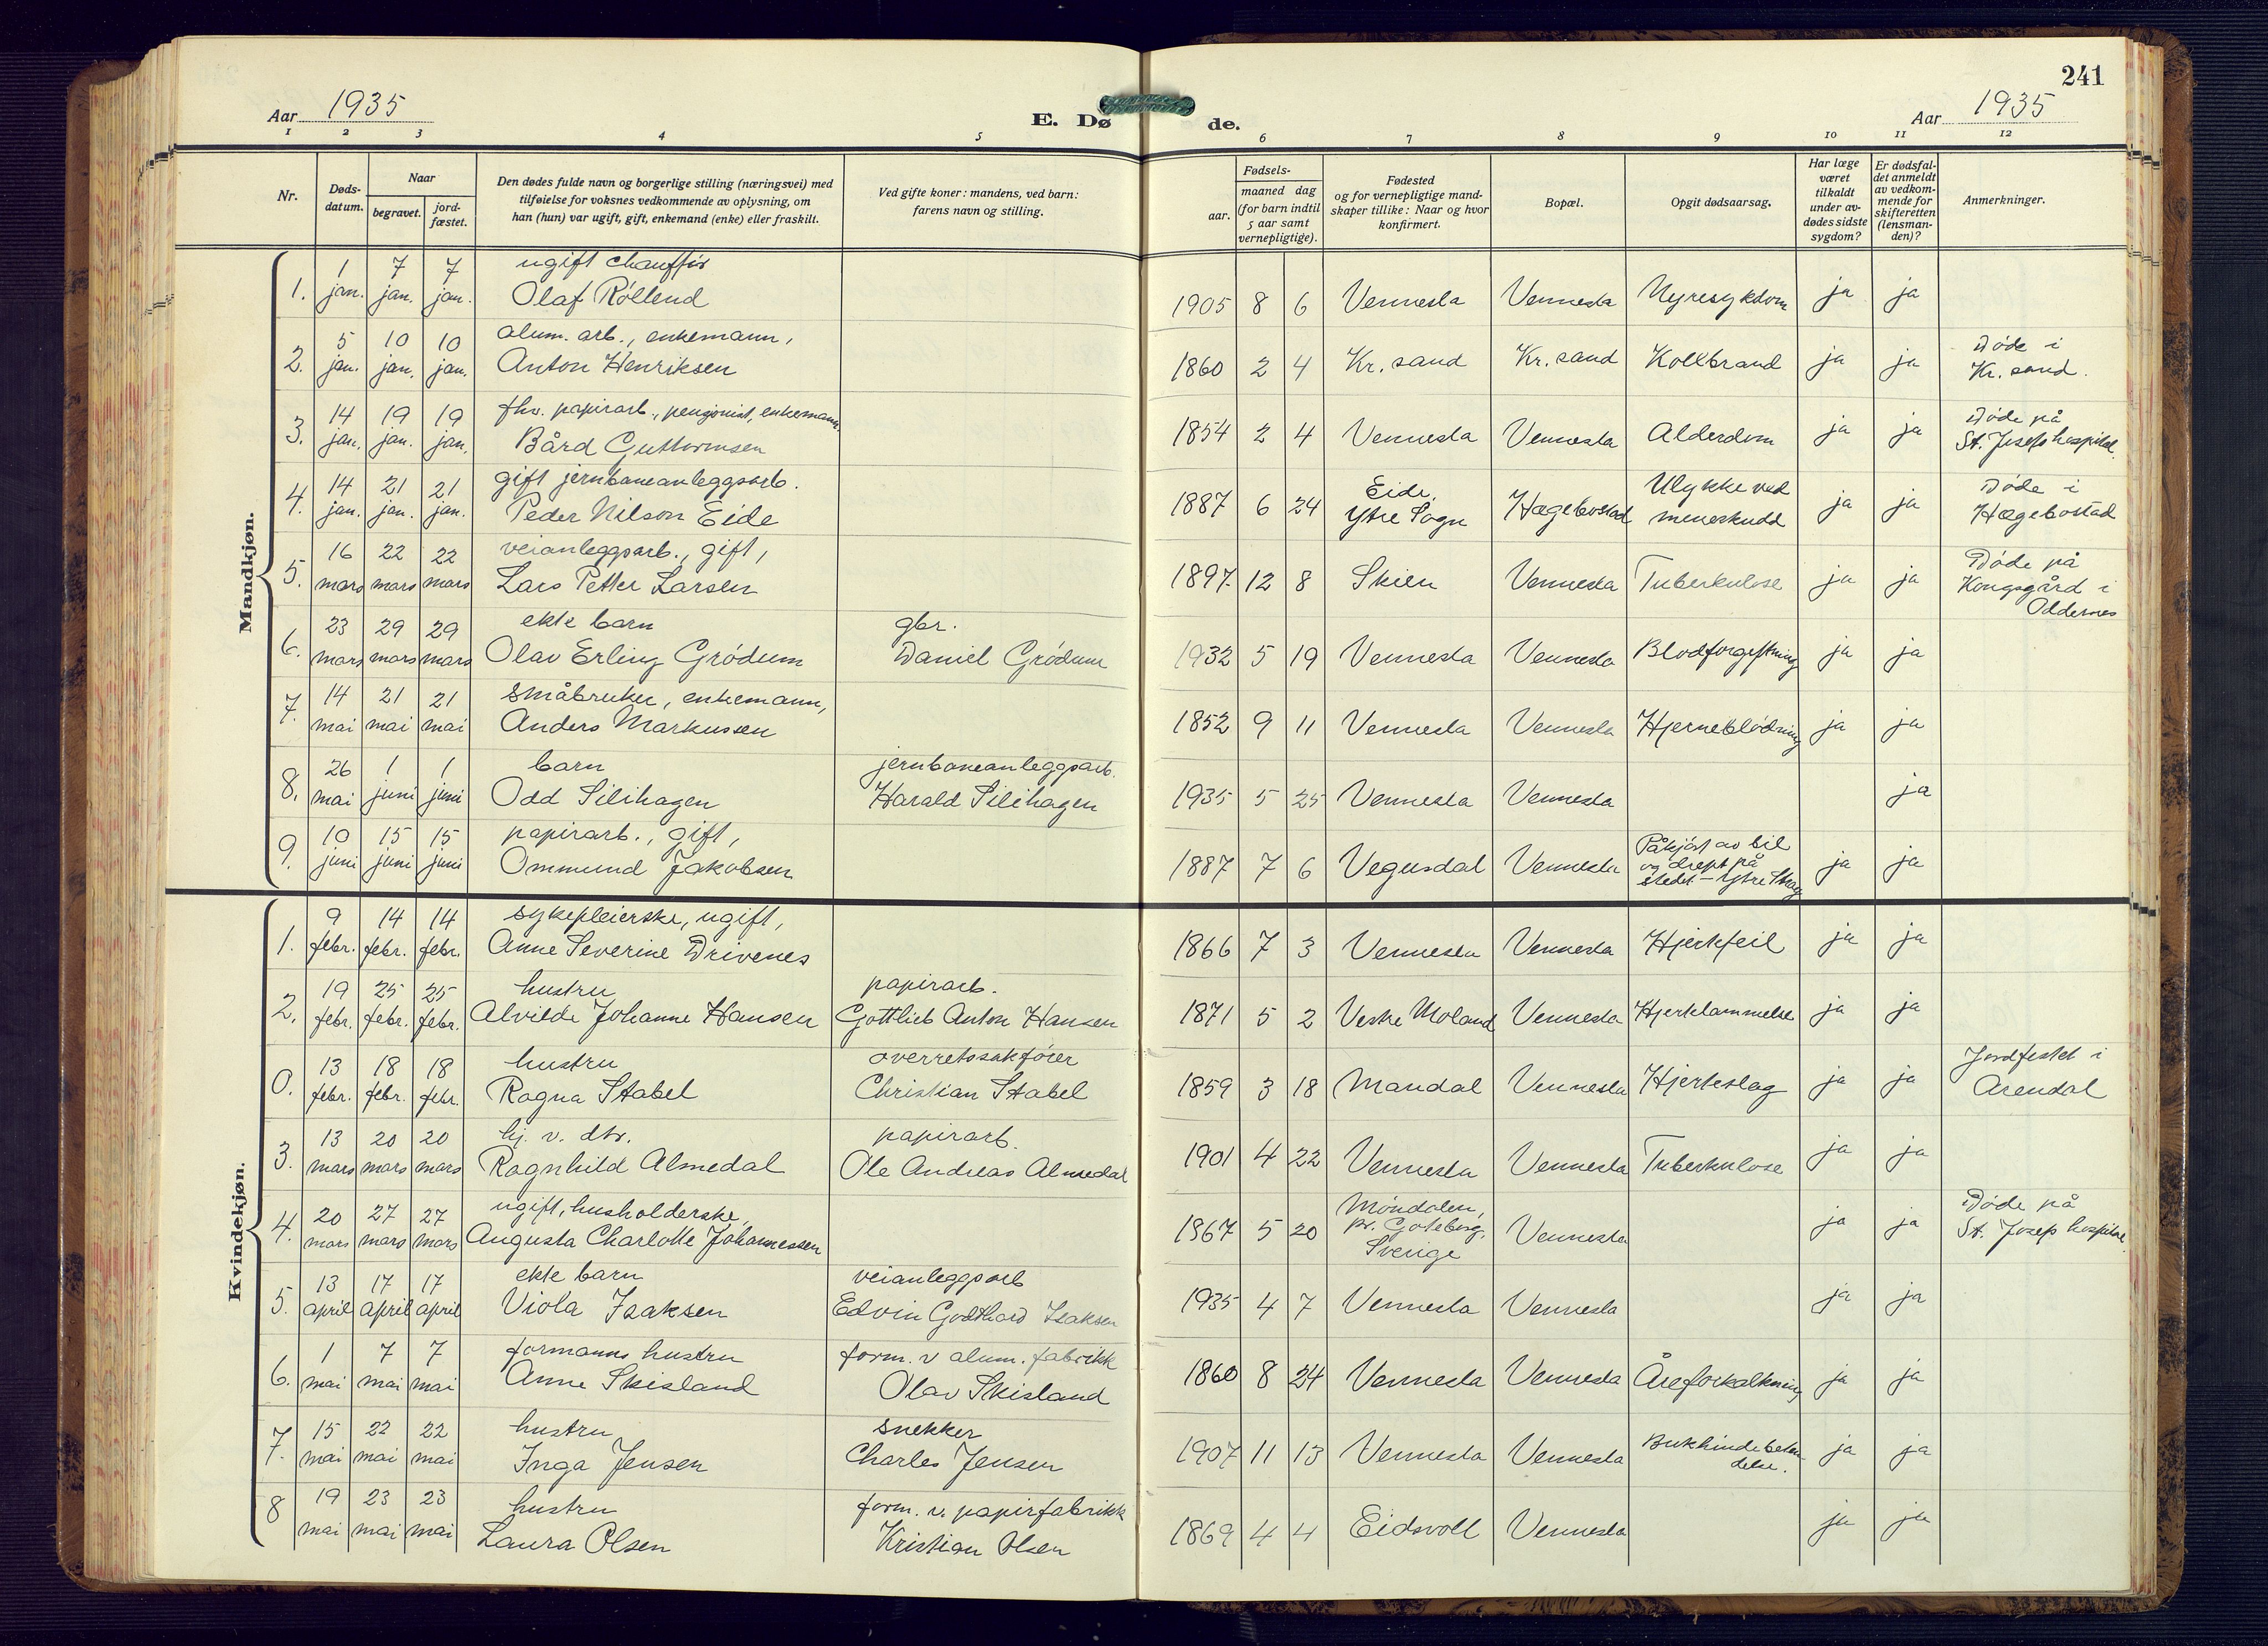 241
Aar 1935
E. Dø de.
Aar 1935
1 2 3 4 5 6 7 8 9 10 11 12
Nr.
Døds-
datum.
Naar
begravet.
jord-
fæstet.
Den dødes fulde navn og borgerlige stilling (næringsvei) med
tilføielse for voksnes vedkommende av oplysning, om
han (hun) var ugift, gift, enkemand (enke) eller fraskilt.
Ved gifte koner: mandens, ved barn:
farens navn og stilling.
Fødsels-
aar.
maaned dag
(for barn indtil
5 aar samt
vernepligtige).
Fødested
og for vernepligtige mand-
skaper tillike: Naar og hvor
konfirmert.
Bopæl.
Opgit dødsaarsag.
Har læge
været
tilkaldt
under av-
dødes sidste
sygdom?
Er dødsfal-
det anmeldt
av vedkom-
mende for
skifteretten
(lensman-
den)?
Anmerkninger.
Mandkjøn.
1. 1 jan. 7 jan. 7 jan. ugift chauffør
Olaf Røllend 1905 8 6 Vennesla Vennesla Nyresykdom ja ja
2. 5 jan. 10 jan. 10 jan. alum. arb., enkemann,
Anton Henriksen 1860 2 4 Kr. sand Kr. sand Kollbrand ja ja Døde i
Kr. sand.
3. 14 jan. 19 jan. 19 jan. fhv. papirarb., pensjonist, enkemann.
Bård Guttormsen 1854 2 4 Vennesla Vennesla Alderdom ja ja Døde på
St. Josefs hospital.
4. 14 jan. 21 jan. 21 jan. gift jernbaneanleggsarb.
Peder Nilson Eide 1887 6 24 Eide,
Ytre Sogn Hægebostad Ulykke ved
mineskudd ja ja Døde i
Hægebostad
5. 16 mars 22 mars 22 mars veianleggsarb., gift,
Lars Petter Larsen 1897 12 8 Skien Vennesla Tuberkulose ja ja Døde på
Kongsgård i
Oddernes
6. 23 mars 29 mars 29 mars ekte barn
Olav Erling Grødum gbr.
Daniel Grødum 1932 5 19 Vennesla Vennesla Blodforgiftning ja ja
7. 14 mai 21 mai 21 mai småbruker, enkemann,
Anders Markussen 1852 9 11 Vennesla Vennesla Hjerneblødning ja ja
8. 26 mai 1 juni 1 juni barn
Odd Silihagen jernbaneanleggsarb.
Harald Silihagen 1935 5 25 Vennesla Vennesla ja
9. 10 juni 15 juni 15 juni papirarb., gift,
Ommund Jakobsen 1887 7 6 Vegusdal Vennesla Påkjørt av bil
og drept på
stedet - Ytre ja ja
Kvindekjøn.
1. 9 febr. 14 febr. 14 febr. sykepleierske, ugift,
Anne Severine Drivenes 1866 7 3 Vennesla Vennesla Hjertefeil ja ja
2. 19 febr. 25 febr. 25 febr. hustru
Alvilde Johanne Hansen papirarb.
Gottlieb Anton Hansen 1871 5 2 Vestre Moland Vennesla Hjertelammelse ja ja
0. 13 febr. 18 febr. 18 febr. hustru
Ragna Stabel overretssakfører
Christian Stabel 1859 3 18 Mandal Vennesla Hjerteslag ja ja Jordfestet i
Arendal
3. 13 mars 20 mars 20 mars hj. v. dtr.
Ragnhild Almedal papirarb.
Ole Andreas Almedal 1901 4 22 Vennesla Vennesla Tuberkulose ja ja
4. 20 mars 27 mars 27 mars ugift, husholderske,
Augusta Charlotte Johannessen 1867 5 20 Møndalen,
pr. Gøteborg,
Sverige Vennesla ja ja Døde på
St. Josefs hospital.
5. 13 april 17 april 17 april ekte barn
Viola Isaksen veianleggsarb
Edvin Godthard Isaksen 1935 4 7 Vennesla Vennesla ja ja
6. 1 mai 7 mai 7 mai formanns hustru
Anne Skisland form. v alum. fabrikk
Olav Skisland 1860 8 24 Vennesla Vennesla Åreforkalkning ja ja
7. 15 mai 22 mai 22 mai hustru
Inga Jensen snekker
Charles Jensen 1907 11 13 Vennesla Vennesla Bukhindebeten
delse. ja ja
8 19 mai 23 mai 23 mai hustru
Laura Olsen form. v. papirfabrikk
Kristian Olsen 1869 4 4 Eidsvoll Vennesla ja ja